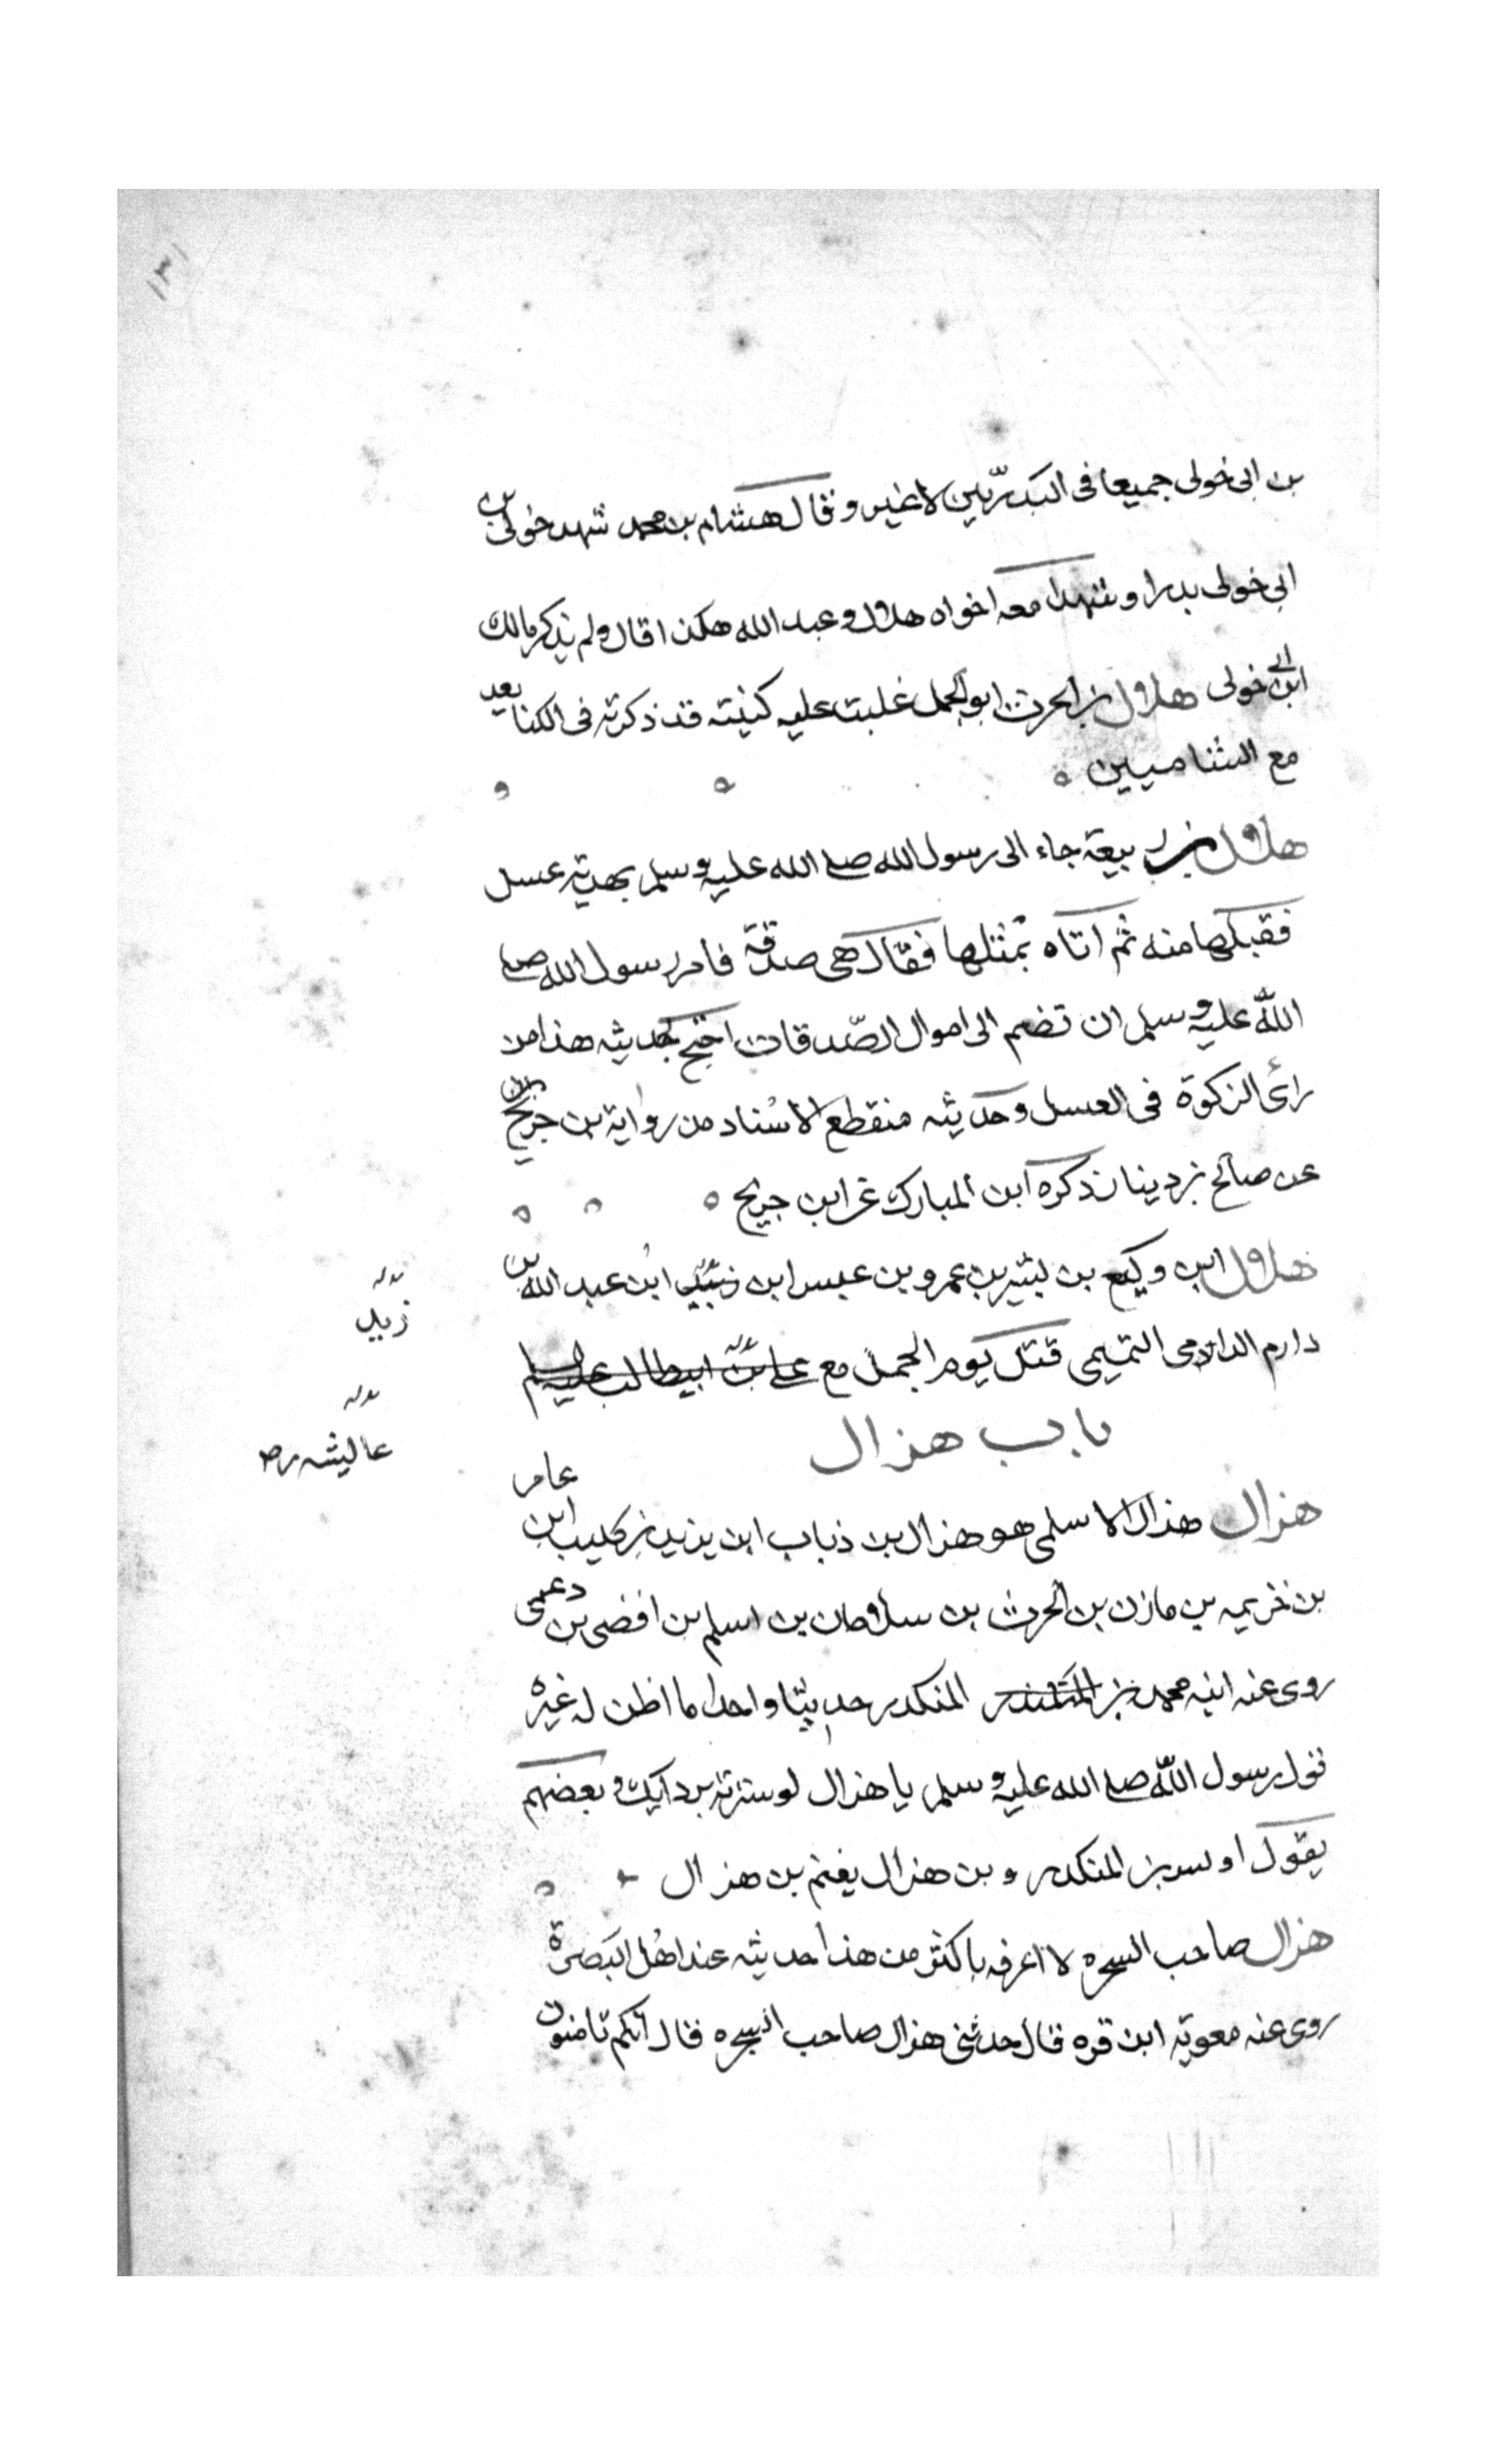 ١٣١
بن ابى خولى جميعا فى البدريّين لا غير وقال هشام بن محمد شهد خولى بن
ابى خولى بدرا وشهدا معه اخواه هلال وعبد الله هكذا قال ولم يذكر مالك
ابن ابى خولى هلال بن الحرث ابو الجمل غلبت عليه كنيته قد ذكرته فى الكنا بعد
مع الشاميين
هلال بن ربيعة جاء الى رسول الله صلى الله عليه وسلم بهدية عسل
فقبلها منه ثم اتاه بمثلها فقال هى صدقة فامر رسول الله صلى
الله عليه وسلم ان تضم الى اموال الصّدقات احتج بحديثه هذا من
رائ الزكوة فى العسل وحديثه منقطع الاسناد من رواية بن جريج
عن صالح بن دينار ذكره ابن المبارك عن ابن جريج
هلال ابن وكيع بن بشير بن عمرو بن عبس ابن ابن عبد الله بن
زيد
دارم الدارمى التميمى قتل يوم الجمل مع على بن ابيطالب عليه السلم
عايشه رضه
باب هزال
هزال هذال الاسلمى هو هزال بن ذباب ابن يزيد بن كليب ابن عامر
بن خزيمه بن مازن بن الحرث بن سلامان بن اسلم بن افصى بن دعمى
روى عنه ابنه محمد بن المنكدر حديثا واحدا ما اظن له غيره
قول رسول اللّه صلى الله عليه وسلم يا هزال لو سترته بردايك وبعضهم
يقول او بن المنكدر وبن هزال يغنم بن هزال
هزال صاحب الشجره لا اعرفه باكثر من هذا حديثه عند اهل البصرة
روى عنه معوية ابن قره قال حدثنى هزال صاحب الشجره قال انكم تاتون